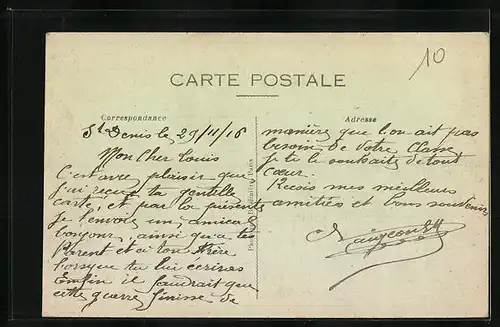 10
CARTE POSTALE
Correspondance
Adresse
St Denis le 29/11/16
Mon Cher Louis
C'est avec plaisir que
j'ai reçu ta gentille
carte, et par la présente
je t'envoie un amical
bonjour, ainsi qu'a tes
Parent et a ton frère
lorsque tu lui ecriras
Enfin il faudrait que
cette guerre finisse de
manière que l'on ait pas
besoin de votre classe
je te le souhaite de tout
cœur.
Recois mes meilleurs
amitiés et bons souvenirs